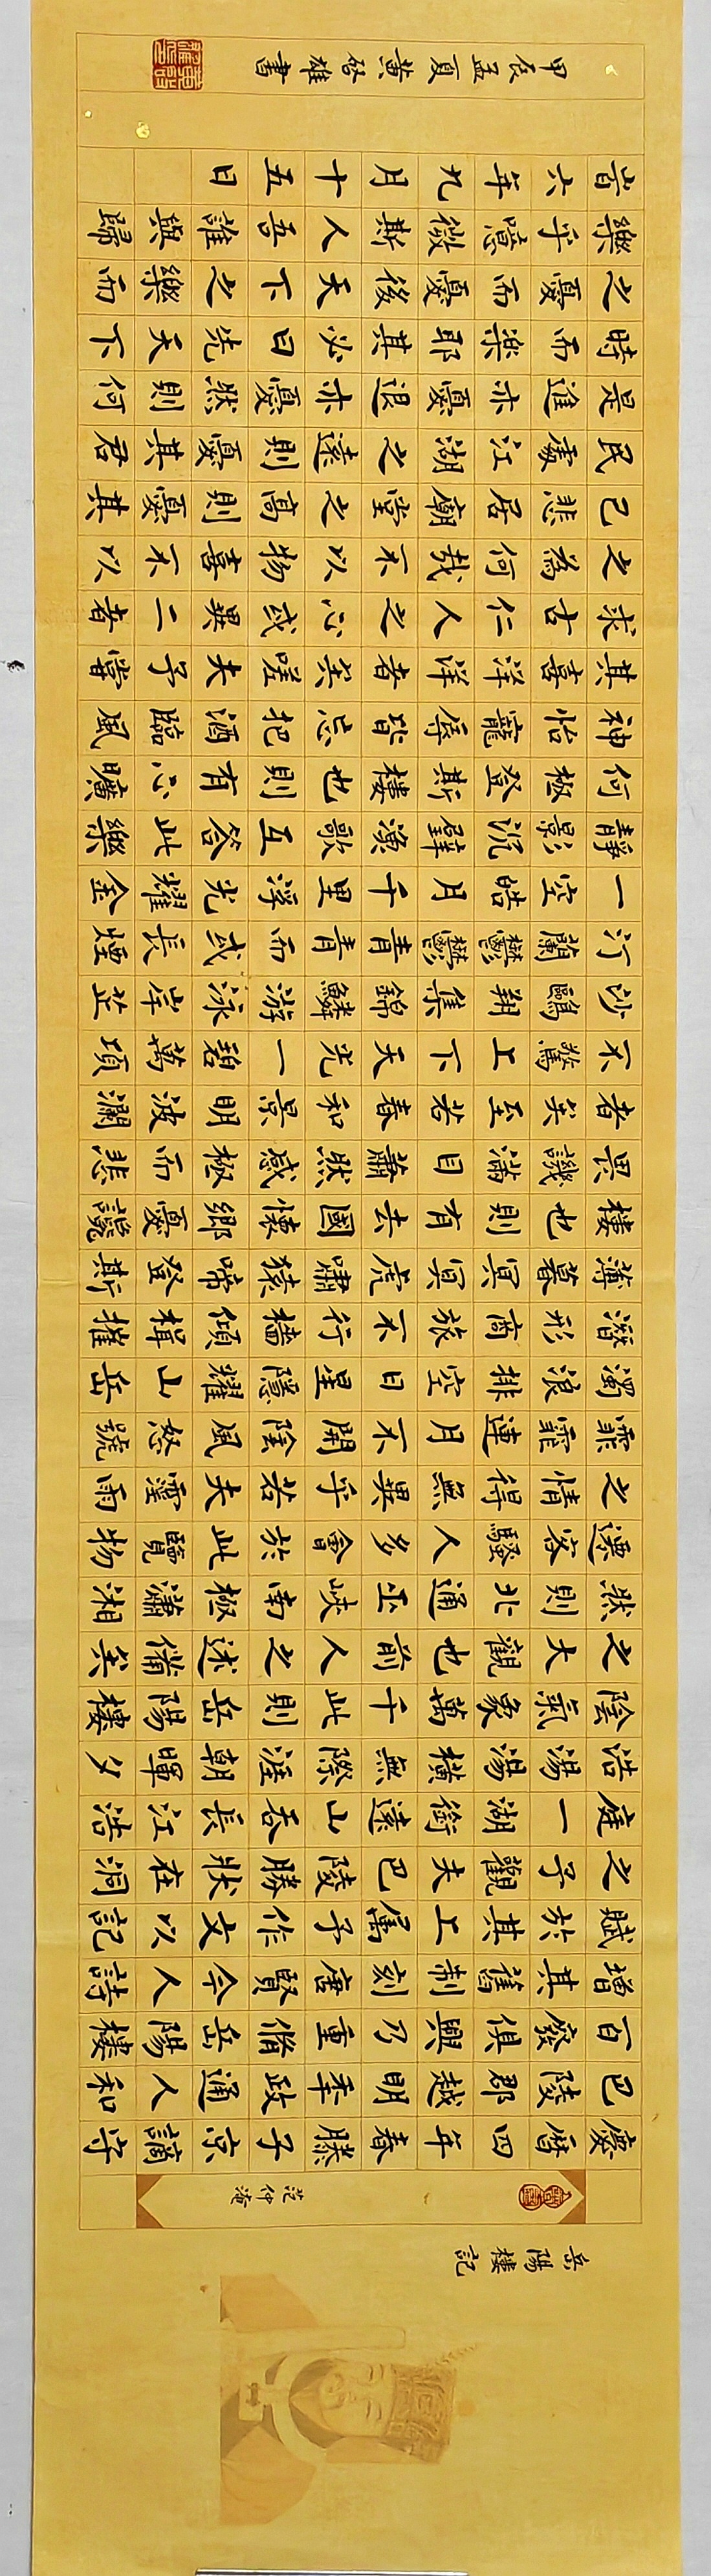 岳陽樓記
范仲淹
慶曆四年春滕子京謫守
巴陵郡越明年政通人和
百廢俱興乃重脩岳陽樓
增其舊制刻唐賢今人詩
賦於其上属予作文以記
之予觀夫巴陵勝狀在洞
庭一湖銜遠山吞長江浩
浩湯湯橫無際涯朝暉夕
陰氣象萬千此則岳陽樓
之大觀也前人之述備矣
然則北通巫峽南極瀟湘
遷客騷人多會於此覽物
之情得無異乎若夫霪雨
霏霏連月不開陰風怒號
濁浪排空日星隱耀山岳
潛形商旅不行檣傾楫摧
薄暮冥冥虎嘯猿啼登斯
樓也則有去國懷鄉憂讒
畏譏滿目蕭然感極而悲
者矣至若春和景明波瀾
不驚上下天光一碧萬頃
沙鷗翔集錦鱗游泳岸芷
汀蘭鬱鬱青青而或長煙
一空皓月千里浮光耀金
靜影沉璧漁歌互答此樂
何極登斯樓也則有心曠
神怡寵辱皆忘把酒臨風
其喜洋洋者矣嗟夫予嘗
求古仁人之心或異二者
之為何哉不以物喜不以
己悲居廟堂之高則憂其
民處江湖之遠則憂其君
是進亦憂退亦憂然則何
時而樂耶其必曰先天下
之憂而憂後天下之樂而
樂乎噫微斯人吾誰與歸
時六年九月十五日
甲辰孟夏黄啓雄書